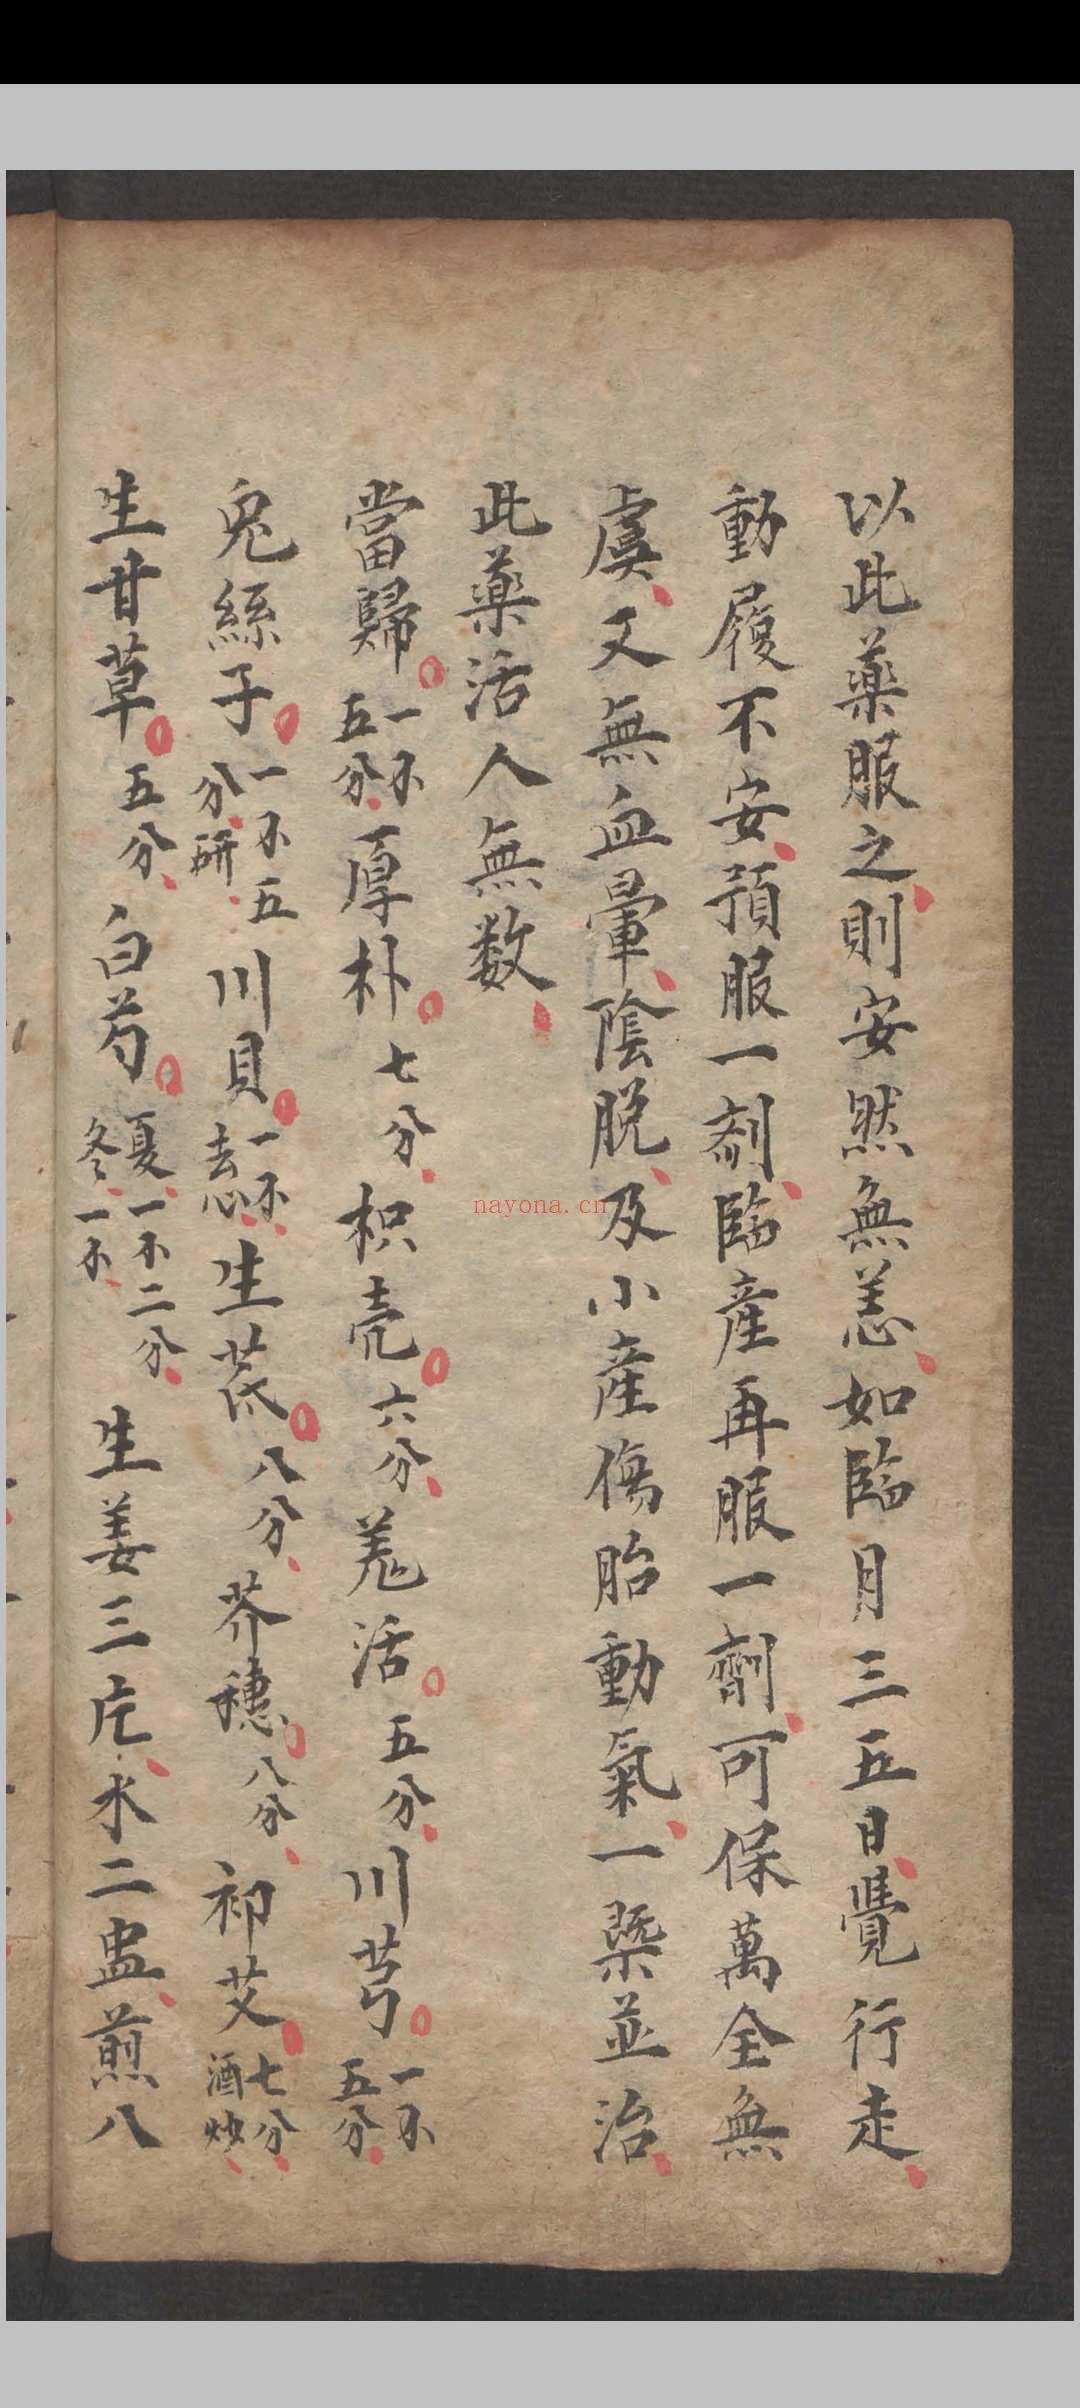 以此藥服之則安然無恙如臨月三五日覺行走
動履不安預服一剤臨產再服一劑可保萬全無
虞又無血暈陰脫及小產傷胎動氣一槩並治
此藥活人無数
當歸一不五分厚朴七分枳壳六分羗活五分川芎一不五分
兔絲子一不五分研川貝一不去心生芪八分芥穗八分祁艾七分酒炒
生甘草五分白芍夏一不二分冬一不生姜三片水二盅煎八
nayona.cn